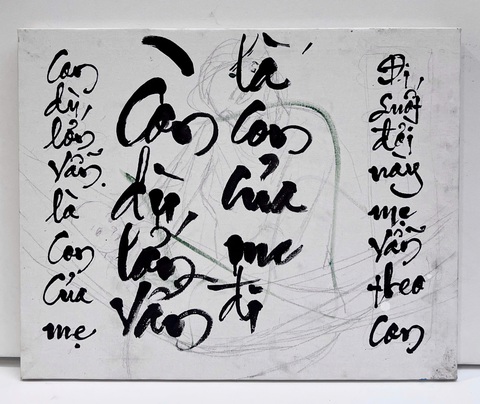 Con dù lớn vẫn là con của mẹ
Con dù lớn vẫn
là con của mẹ đi
Đi, suốt đời này mẹ vẫn theo con